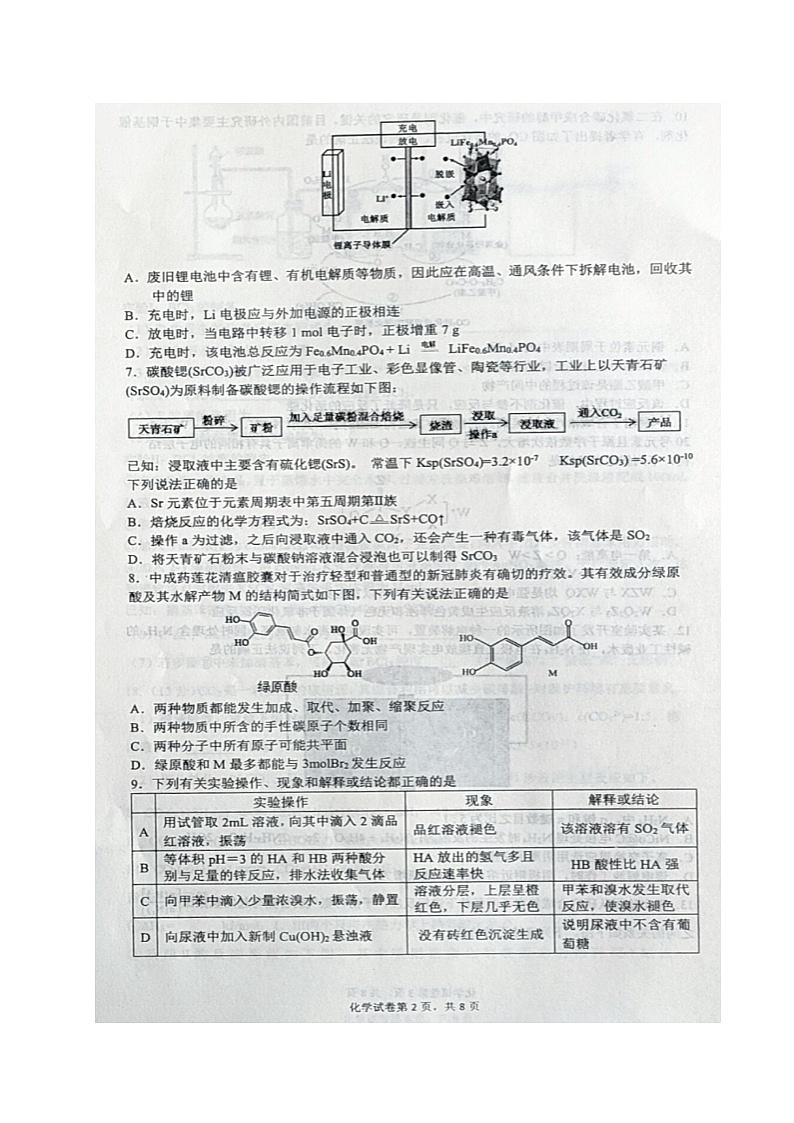 充电
放电
LiFe0.6Mn0.4PO4
Li电极
脱嵌
Li⁺
嵌入
电解质
电解质
锂离子导体膜
A．废旧锂电池中含有锂、有机电解质等物质，因此应在高温、通风条件下拆解电池，回收其
中的锂
B．充电时，Li 电极应与外加电源的正极相连
C．放电时，当电路中转移 1 mol 电子时，正极增重 7 g
D．充电时，该电池总反应为 Fe0.6Mn0.4PO4 + Li 电解 LiFe0.6Mn0.4PO4
7．碳酸锶(SrCO3)被广泛应用于电子工业、彩色显像管、陶瓷等行业，工业上以天青石矿
(SrSO4)为原料制备碳酸锶的操作流程如下图：
天青石矿 粉碎 矿粉 加入足量碳粉混合焙烧 烧渣 浸取 操作a 浸取液 通入CO2 产品
已知：浸取液中主要含有硫化锶(SrS)。 常温下 Ksp(SrSO4)=3.2×10⁻⁷ Ksp(SrCO3) =5.6×10⁻¹⁰
下列说法正确的是
A．Sr 元素位于元素周期表中第五周期第Ⅱ族
B．焙烧反应的化学方程式为：SrSO4+C △ SrS+CO↑
C．操作 a 为过滤，之后向浸取液中通入 CO2，还会产生一种有毒气体，该气体是 SO2
D．将天青矿石粉末与碳酸钠溶液混合浸泡也可以制得 SrCO3
8．中成药莲花清瘟胶囊对于治疗轻型和普通型的新冠肺炎有确切的疗效。其有效成分绿原
酸及其水解产物 M 的结构简式如下图，下列有关说法正确的是
HO
HO
O
O
HO
O
OH
HO
OH
绿原酸
HO
HO
O
OH
M
A．两种物质都能发生加成、取代、加聚、缩聚反应
B．两种物质中所含的手性碳原子个数相同
C．两种分子中所有原子可能共平面
D．绿原酸和 M 最多都能与 3molBr2 发生反应
9．下列有关实验操作、现象和解释或结论都正确的是
实验操作 现象 解释或结论
A 用试管取 2mL 溶液，向其中滴入 2 滴品
红溶液，振荡 品红溶液褪色 该溶液溶有 SO2 气体
B 等体积 pH＝3 的 HA 和 HB 两种酸分
别与足量的锌反应，排水法收集气体 HA 放出的氢气多且
反应速率快 HB 酸性比 HA 强
C 向甲苯中滴入少量浓溴水，振荡，静置 溶液分层，上层呈橙
红色，下层几乎无色 甲苯和溴水发生取代
反应，使溴水褪色
D 向尿液中加入新制 Cu(OH)2 悬浊液 没有砖红色沉淀生成 说明尿液中不含有葡
萄糖
化学试卷第 2 页，共 8 页